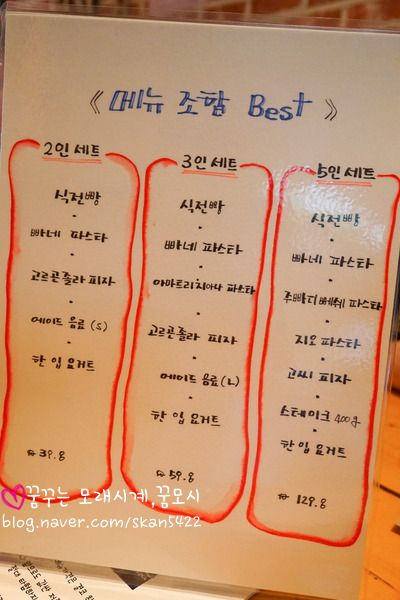 《 메뉴 조합 Best 》
2인 세트
식전빵
빠네 파스타
고르곤졸라 피자
에이드 음료 (S)
한 입 요거트
₩ 39.8
3인 세트
식전빵
빠네 파스타
아마트리치아나 파스타
고르곤졸라 피자
에이드 음료 (L)
한 입 요거트
₩ 59.8
5인 세트
식전빵
빠네 파스타
주빠디뻬쉐 파스타
지오 파스타
고씨 피자
스테이크 400g
한 입 요거트
₩ 129.8
꿈꾸는 모래시계,꿈모시
blog.naver.com/skan5422